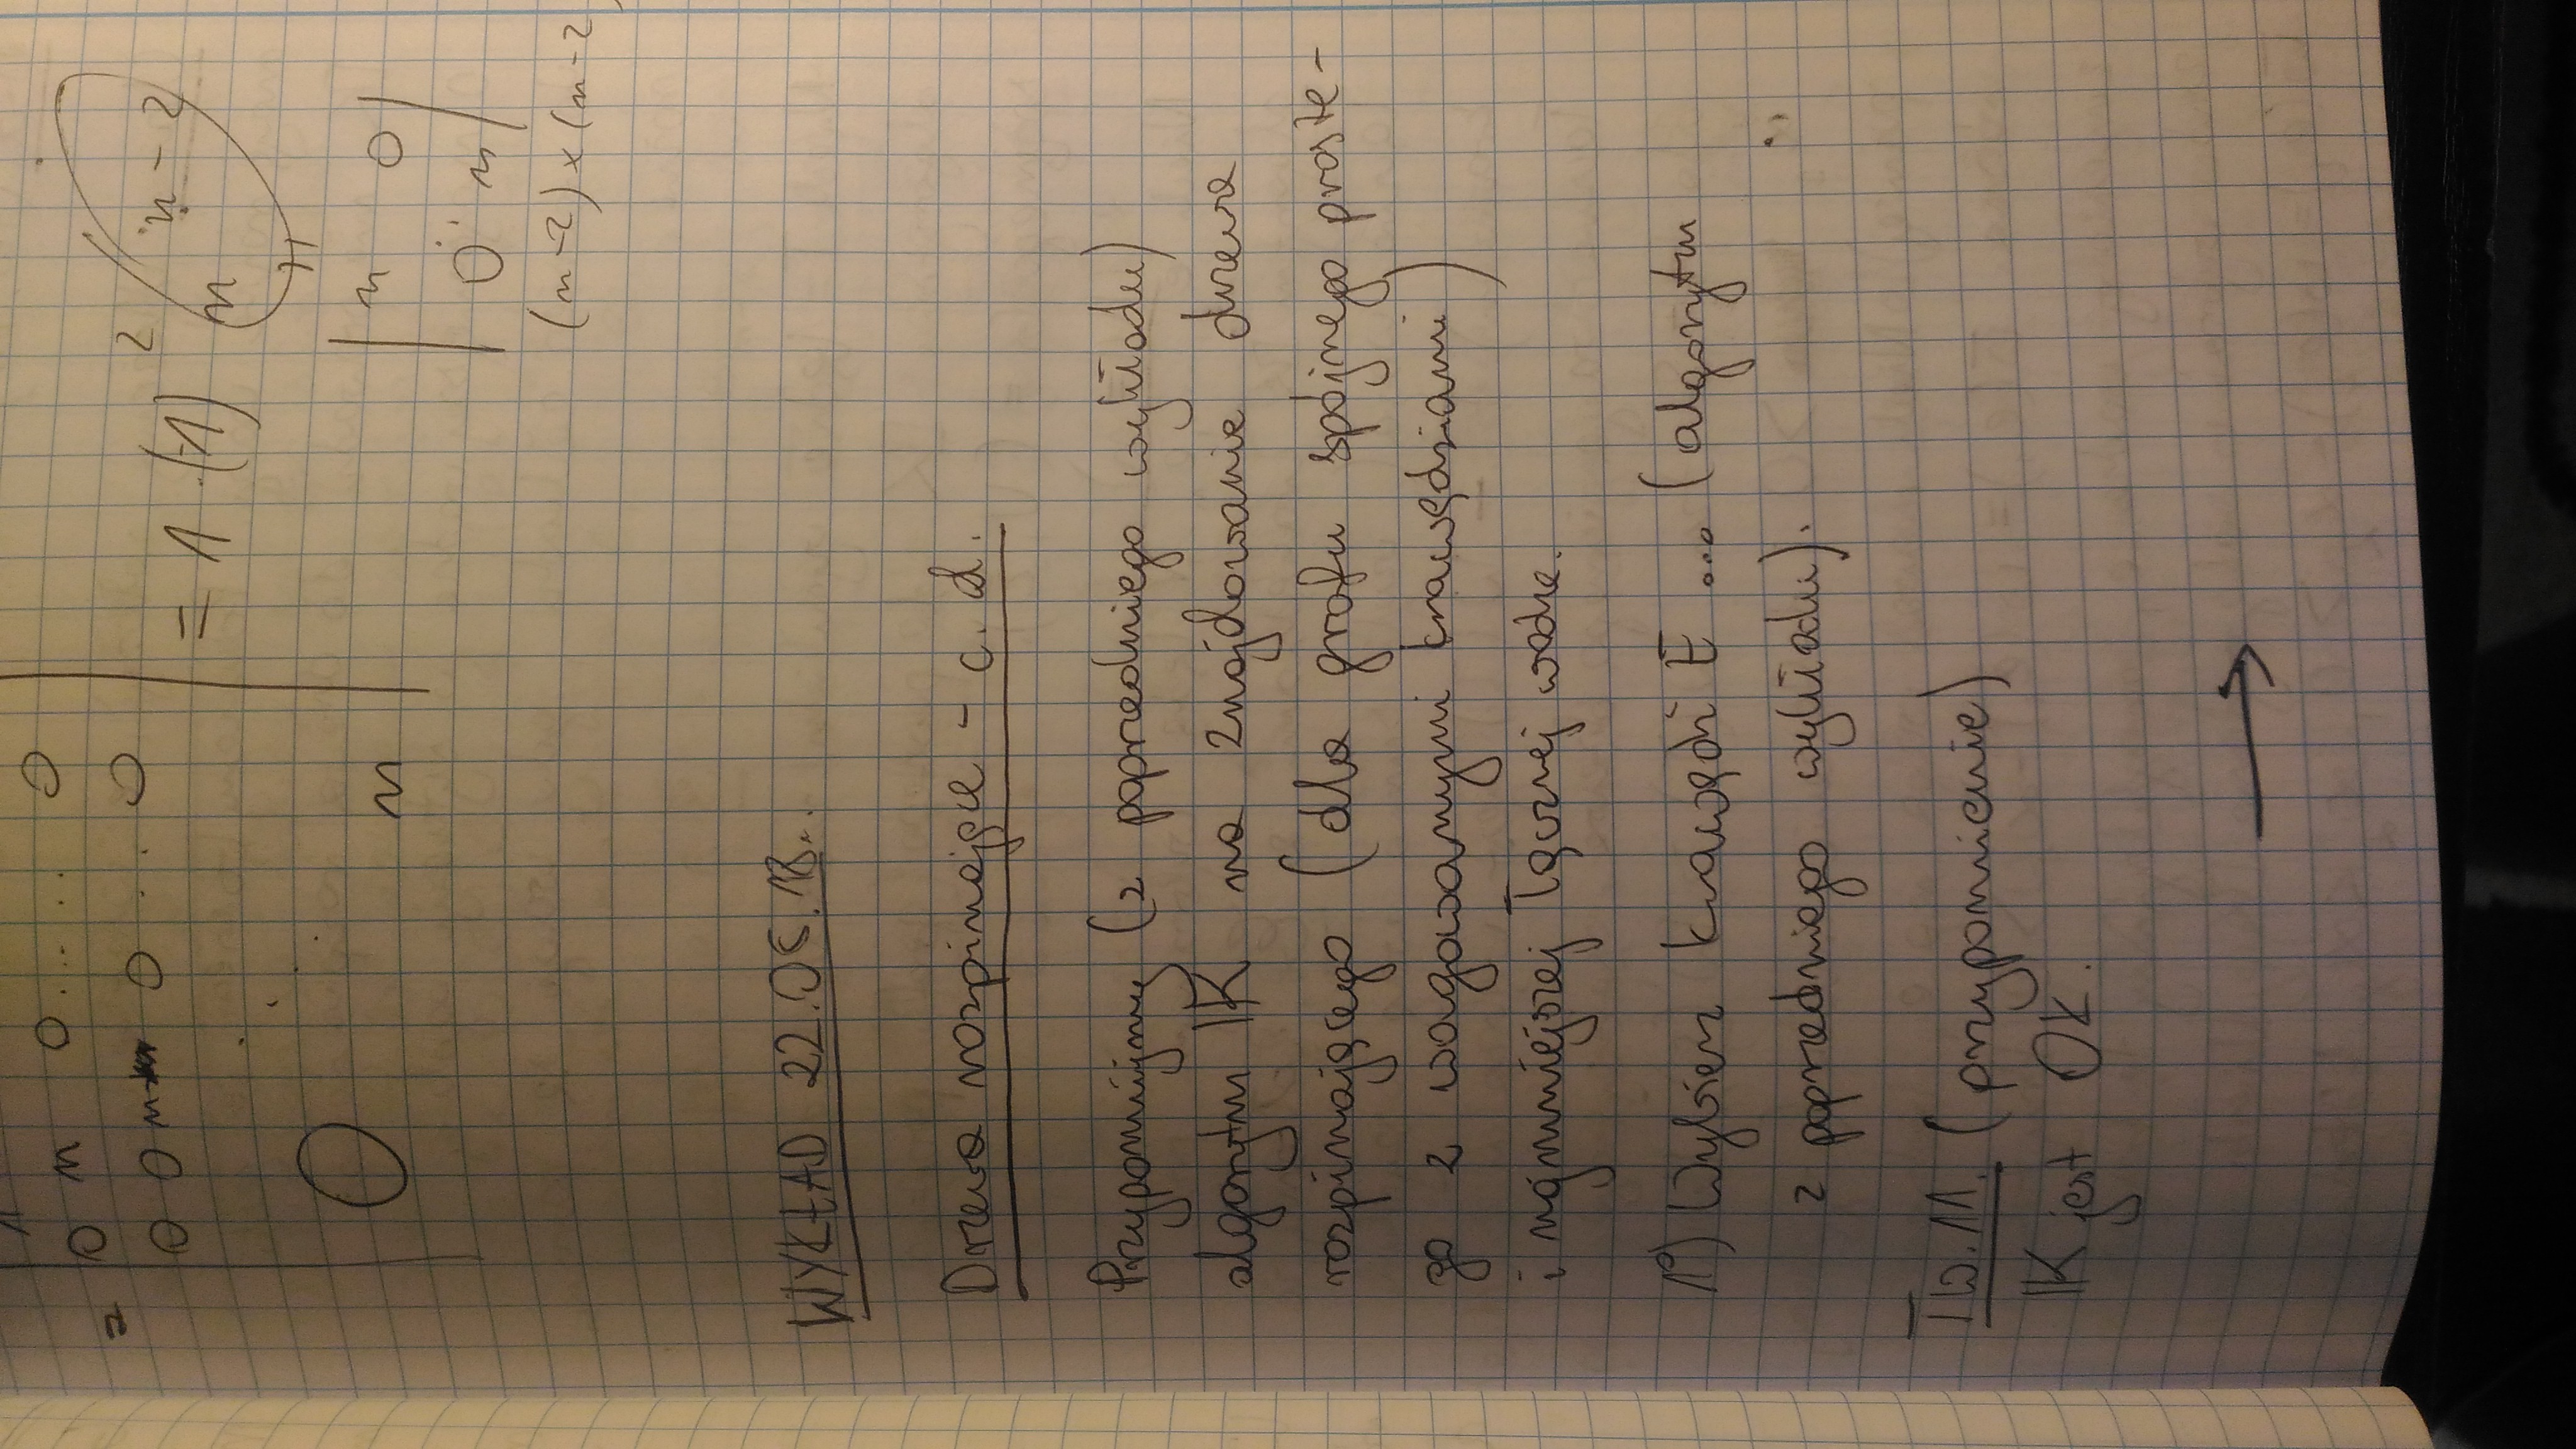 = 0 n 0 ..... 0
0 0 n 0 ... 0
0 n
= 1 · (-1)² n^(n-2)
=
| n 0 |
| 0 n |
(n-2) × (n-2
WYKŁAD 22.05.18.
Drzewa rozpinające - c. d.
Przypomnijmy (z poprzedniego wykładu)
algorytm K na znajdowanie drzewa
rozpinającego (dla grafu spójnego proste-
go z wagowanymi krawędziami)
i najmniejszej łącznej wadze.
1°) Wybierz krawędź E ... (algorytm
z poprzedniego wykładu).
Tw. 11. (przypomnienie)
K jest OK.